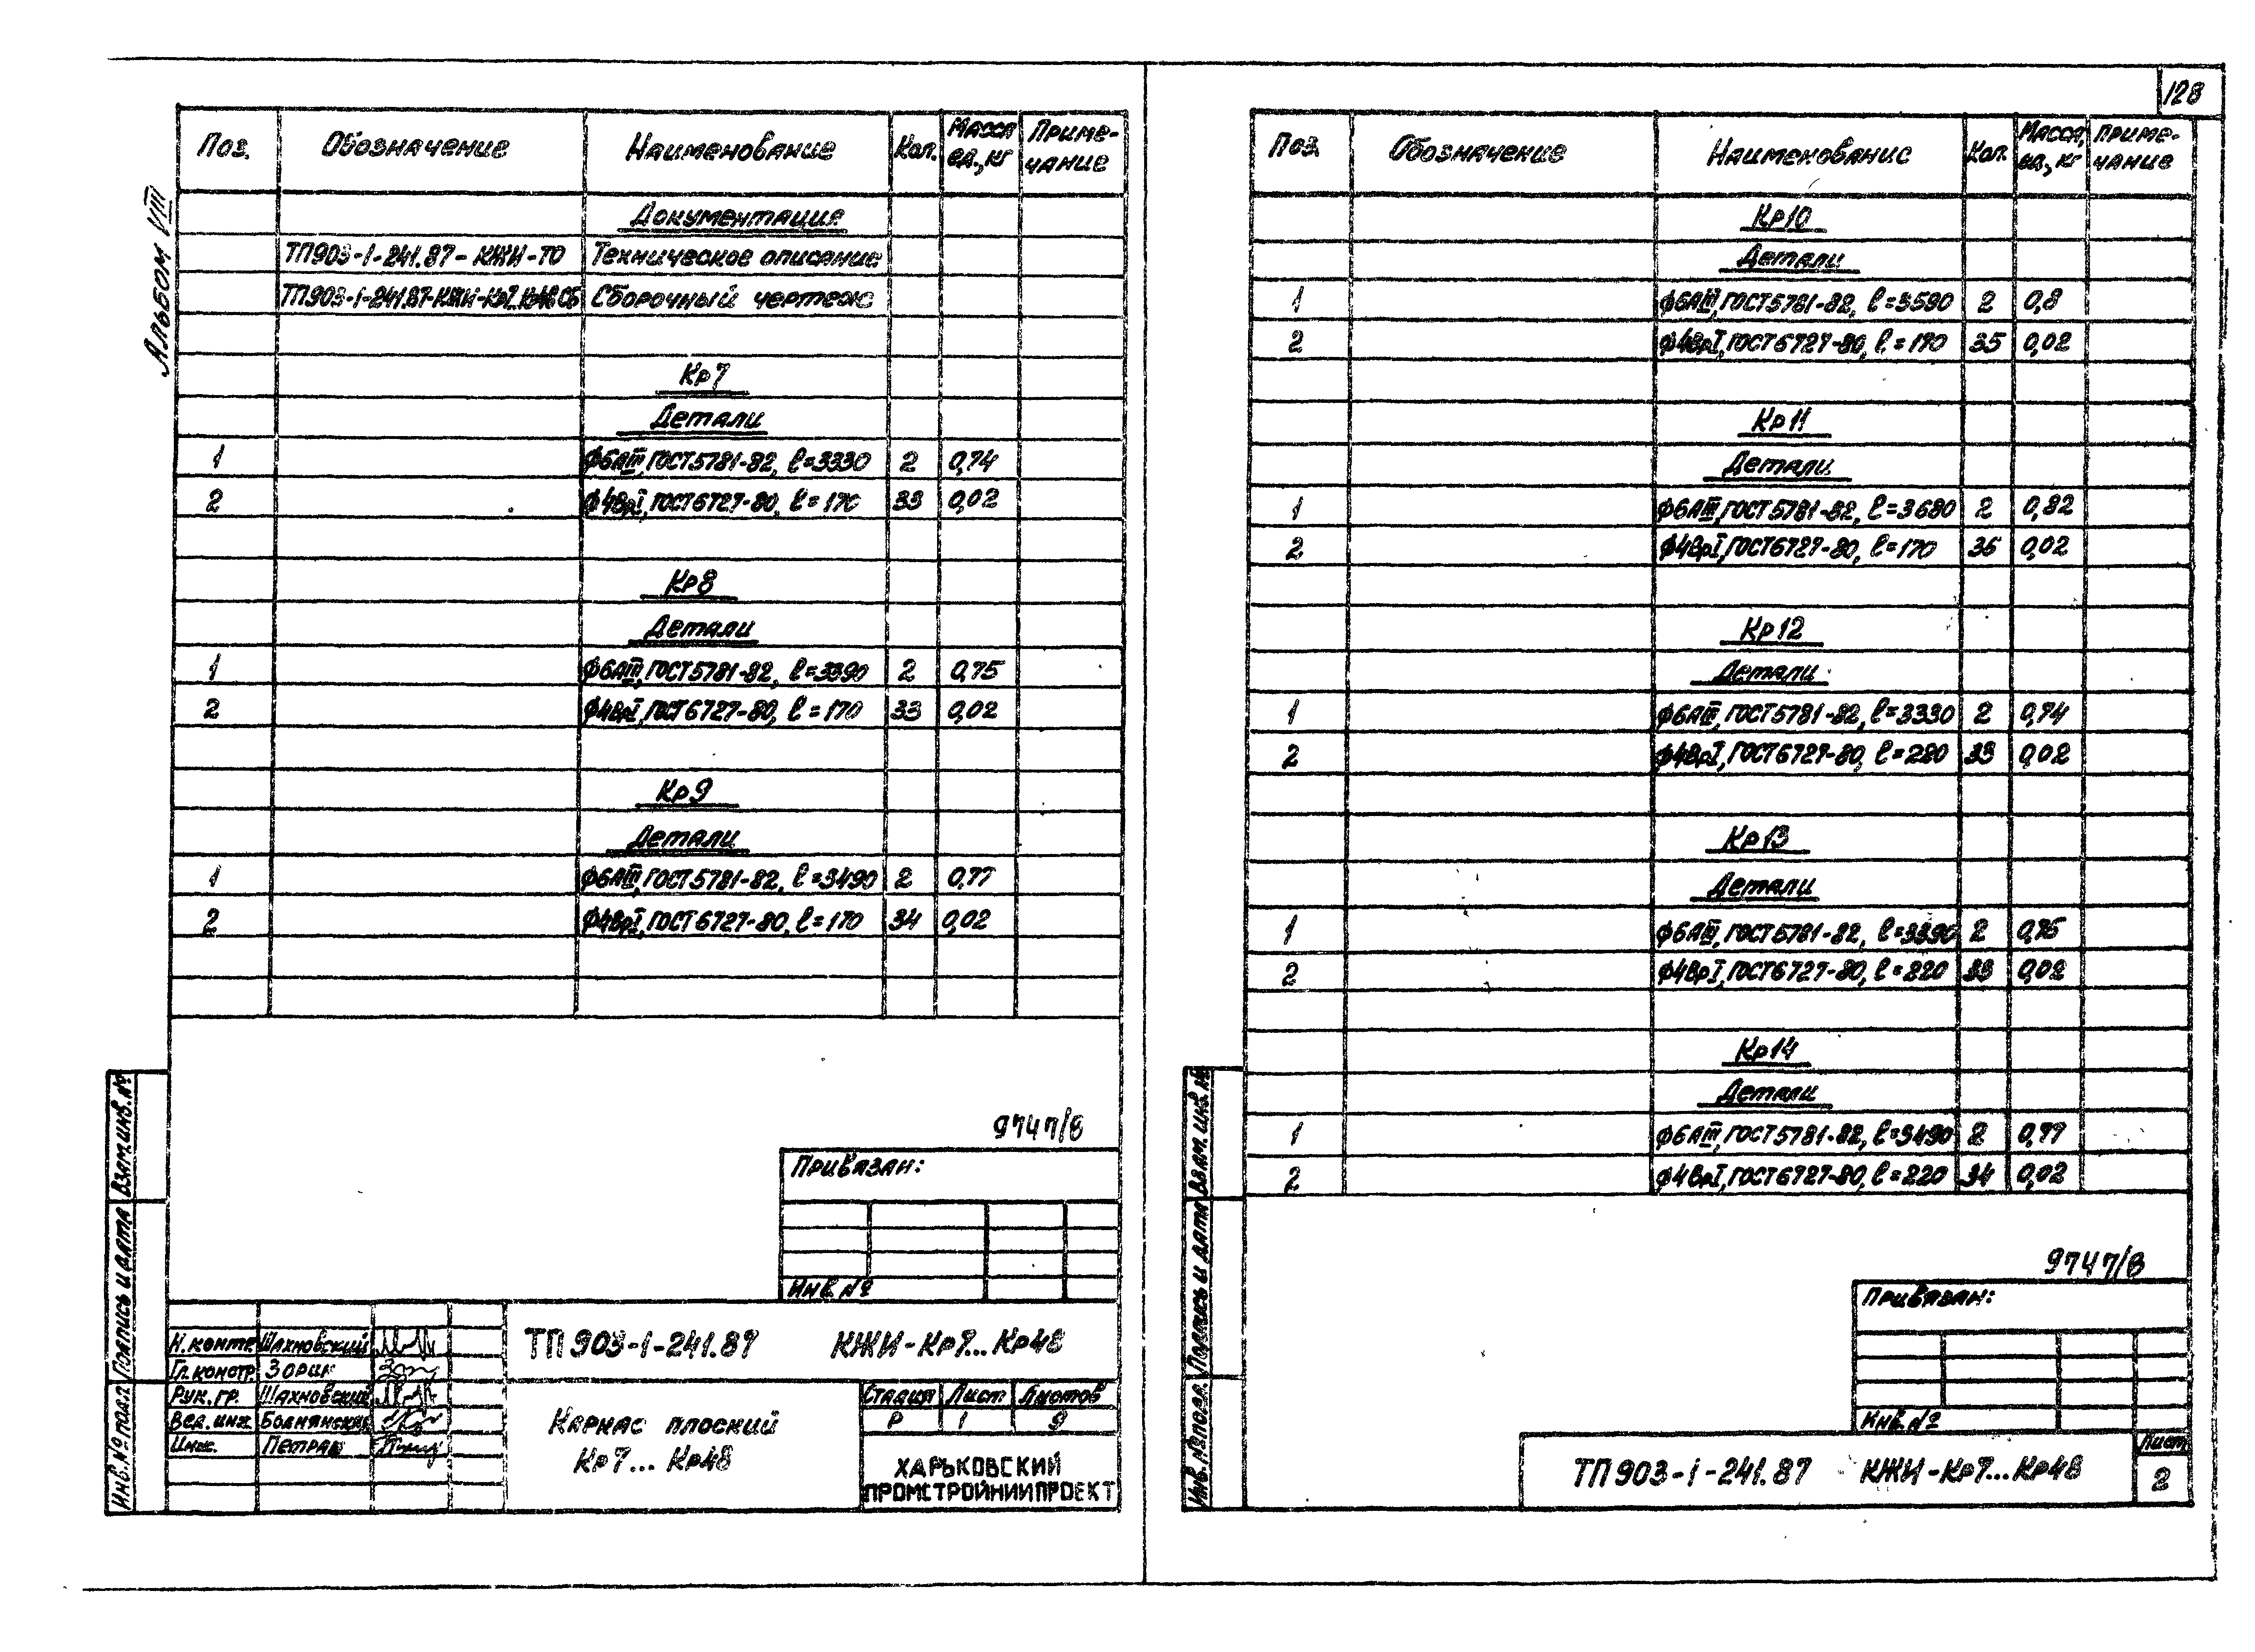 128
Альбом VIII
Поз. Обозначение Наименование Кол. Масса ед., кг Приме-чание
Документация
ТП903-1-241.87-КЖИ-ТО Техническое описание
ТП903-1-241.87-КЖИ-Кр7...Кр48СБ Сборочный чертеж
Кр7
Детали
1 ф6АIII, ГОСТ5781-82, ℓ=3330 2 0,74
2 ф4ВрI, ГОСТ6727-80, ℓ=170 33 0,02
Кр8
Детали
1 ф6АIII, ГОСТ5781-82, ℓ=3390 2 0,75
2 ф4ВрI, ГОСТ6727-80, ℓ=170 33 0,02
Кр9
Детали
1 ф6АIII, ГОСТ5781-82, ℓ=3490 2 0,77
2 ф4ВрI, ГОСТ6727-80, ℓ=170 34 0,02
9747/8
Привязан:
Инв. №
Взам. инв. №
Подпись и дата
Инв. № подл.
Н. контр. Шахновский
Гл. констр. Зорин
Рук. гр. Шахновский
Вед. инж.
Инж. Петраш
ТП 903-1-241.87 КЖИ-Кр7...Кр48
Каркас плоский
Кр7... Кр48
Стадия Лист Листов
Р 1 9
ХАРЬКОВСКИЙ
ПРОМСТРОЙНИИПРОЕКТ
Поз. Обозначение Наименование Кол. Масса, ед., кг Приме-чание
Кр10
Детали
1 ф6АIII, ГОСТ5781-82, ℓ=3590 2 0,8
2 ф4ВрI, ГОСТ6727-80, ℓ=170 35 0,02
Кр11
Детали
1 ф6АIII, ГОСТ5781-82, ℓ=3680 2 0,82
2 ф4ВрI, ГОСТ6727-80, ℓ=170 36 0,02
Кр12
Детали
1 ф6АIII, ГОСТ5781-82, ℓ=3330 2 0,74
2 ф4ВрI, ГОСТ6727-80, ℓ=220 33 0,02
Кр13
Детали
1 ф6АIII, ГОСТ5781-82, ℓ=3390 2 0,75
2 ф4ВрI, ГОСТ6727-80, ℓ=220 33 0,02
Кр14
Детали
1 ф6АIII, ГОСТ5781-82, ℓ=3490 2 0,77
2 ф4ВрI, ГОСТ6727-80, ℓ=220 34 0,02
9747/8
Привязан:
Инв. №
Взам. инв. №
Подпись и дата
Инв. № подл.
ТП 903-1-241.87 КЖИ-Кр7...Кр48
Лист
2